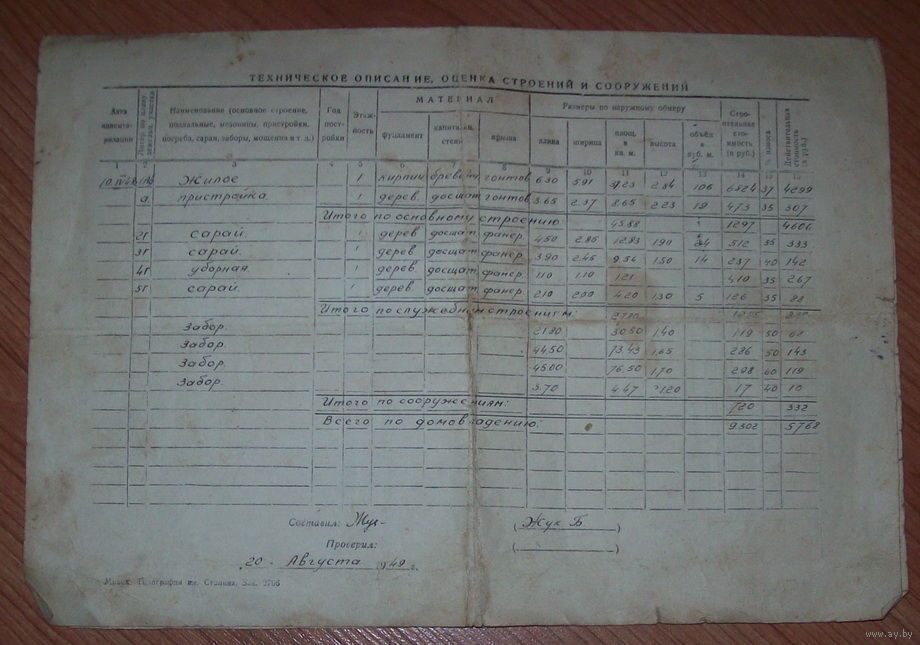 ТЕХНИЧЕСКОЕ ОПИСАНИЕ, ОЦЕНКА СТРОЕНИЙ И СООРУЖЕНИЙ
Дата инвентаризации Литер по плану земельн. участка Наименование (основное строение, подвальные, мезонины, пристройки, погреба, сараи, заборы, мощения и т. д.) Год постройки Этажность МАТЕРИАЛ фундамент капитал. стен крыши Размеры по наружному обмеру длина ширина площ. в кв. м. высота объём в куб. м. Строительная стоимость (в руб.) % износа Действительная стоимость (в руб.)
1 2 3 4 5 6 7 8 9 10 11 12 13 14 15 16
Жилое 1 кирпич гонтов 6.30 5.91 2.84 106 6824 37 4299
а пристройка 1 дерев. дощат. гонтов 3.65 2.37 8.65 2.23 19 473 35 307
Итого по основному строению: 45.88 7297 4606
2г сарай 1 дерев дощат. фанер. 4.50 2.85 12.83 1.90 24 512 35 333
3г сарай. 1 дерев дощат. фанер. 3.90 2.45 9.56 1.50 14 237 40 142
4г уборная 1 дерев. дощат. фанер. 1.10 1.10 1.21 410 35 267
5г сарай. 1 дерев. дощат. фанер. 2.10 2.00 4.20 1.30 5 126 35
Итого по служебным строениям:
Забор. 30.50 1.40 119 50
Забор. 44.50 73.43 1.65 286 50 143
Забор. 45.00 76.50 1.70 298 60 119
Забор. 3.70 4.47 1.20 17 40 10
Итого по сооружениям: 720 332
Всего по домовладению: 9302 5768
Составил: Жук (Жук Б )
Проверил: ( )
"20 " Августа 1949 г.
Минск. Типография им. Сталина, Зак. 2706
www.ay.by